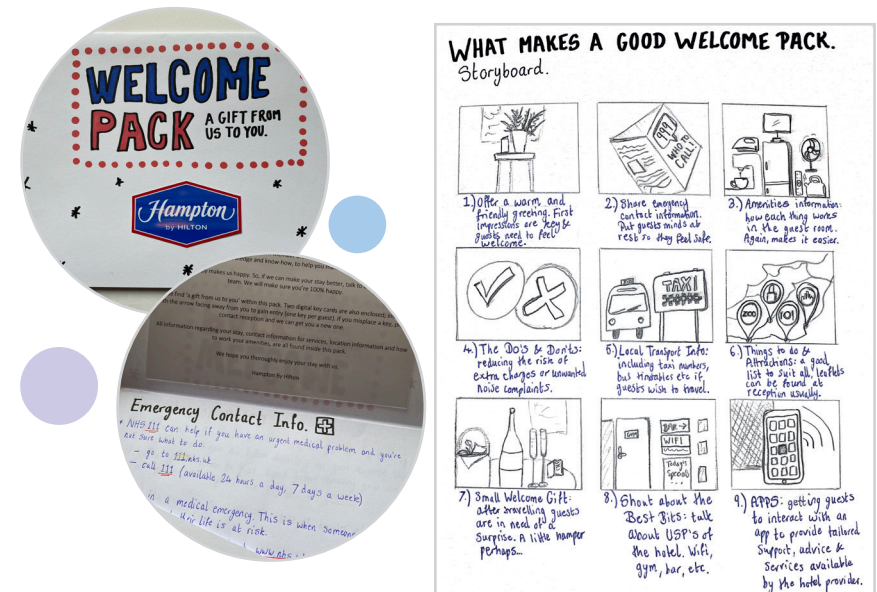 WELCOME
PACK
A GIFT FROM
US TO YOU.
Hampton
by HILTON
and know-how, to help you ma
makes us happy. So, if we can make your stay better, talk to
team. We will make sure you're 100% happy.
find 'a gift from us to you' within this pack. Two digital key cards are also enclosed;
the arrow facing away from you to gain entry (one key per guest). If you misplace a key,
contact reception and we can get you a new one.
All information regarding your stay, contact information for services, location information and how
to work your amenities, are all found inside this pack.
We hope you thoroughly enjoy your stay with us.
Hampton By Hilton
Emergency Contact Info.
* NHS 111 can help if you have an urgent medical problem and you're
not sure what to do:
- go to 111.nhs.uk
- call 111 (available 24 hours a day, 7 days a week)
in a medical emergency. This is when someone
their life is at risk.
www.nhs
WHAT MAKES A GOOD WELCOME PACK.
Storyboard.
999
WHO TO
CALL!
1.) Offer a warm and
friendly greeting. First
impressions are key &
guests need to feel
welcome.
2.) Share emergency
contact information.
Put guests minds at
rest so they feel safe.
3.) Amenities information:
how each thing works
in the guest room.
Again, makes it easier.
TAXI
ZOO
101
4.) The Do's & Don'ts:
reducing the risk of
extra charges or unwanted
noise complaints.
5.) Local Transport Info:
including taxi numbers,
bus timetables etc if
guests wish to travel.
6.) Things to do &
Attractions: a good
list to suit all, leaflets
can be found at
reception usually.
GYM
BAR →
WIFI
Today's
Special
7.) Small Welcome Gift:
after travelling guests
are in need of a
surprise. A little hamper
perhaps...
8.) Shout about the
Best Bits: talk
about USP's of
the hotel. Wifi,
gym, bar, etc.
9.) APPS: getting guests
to interact with an
app to provide tailored
support, advice &
services available
by the hotel provider.